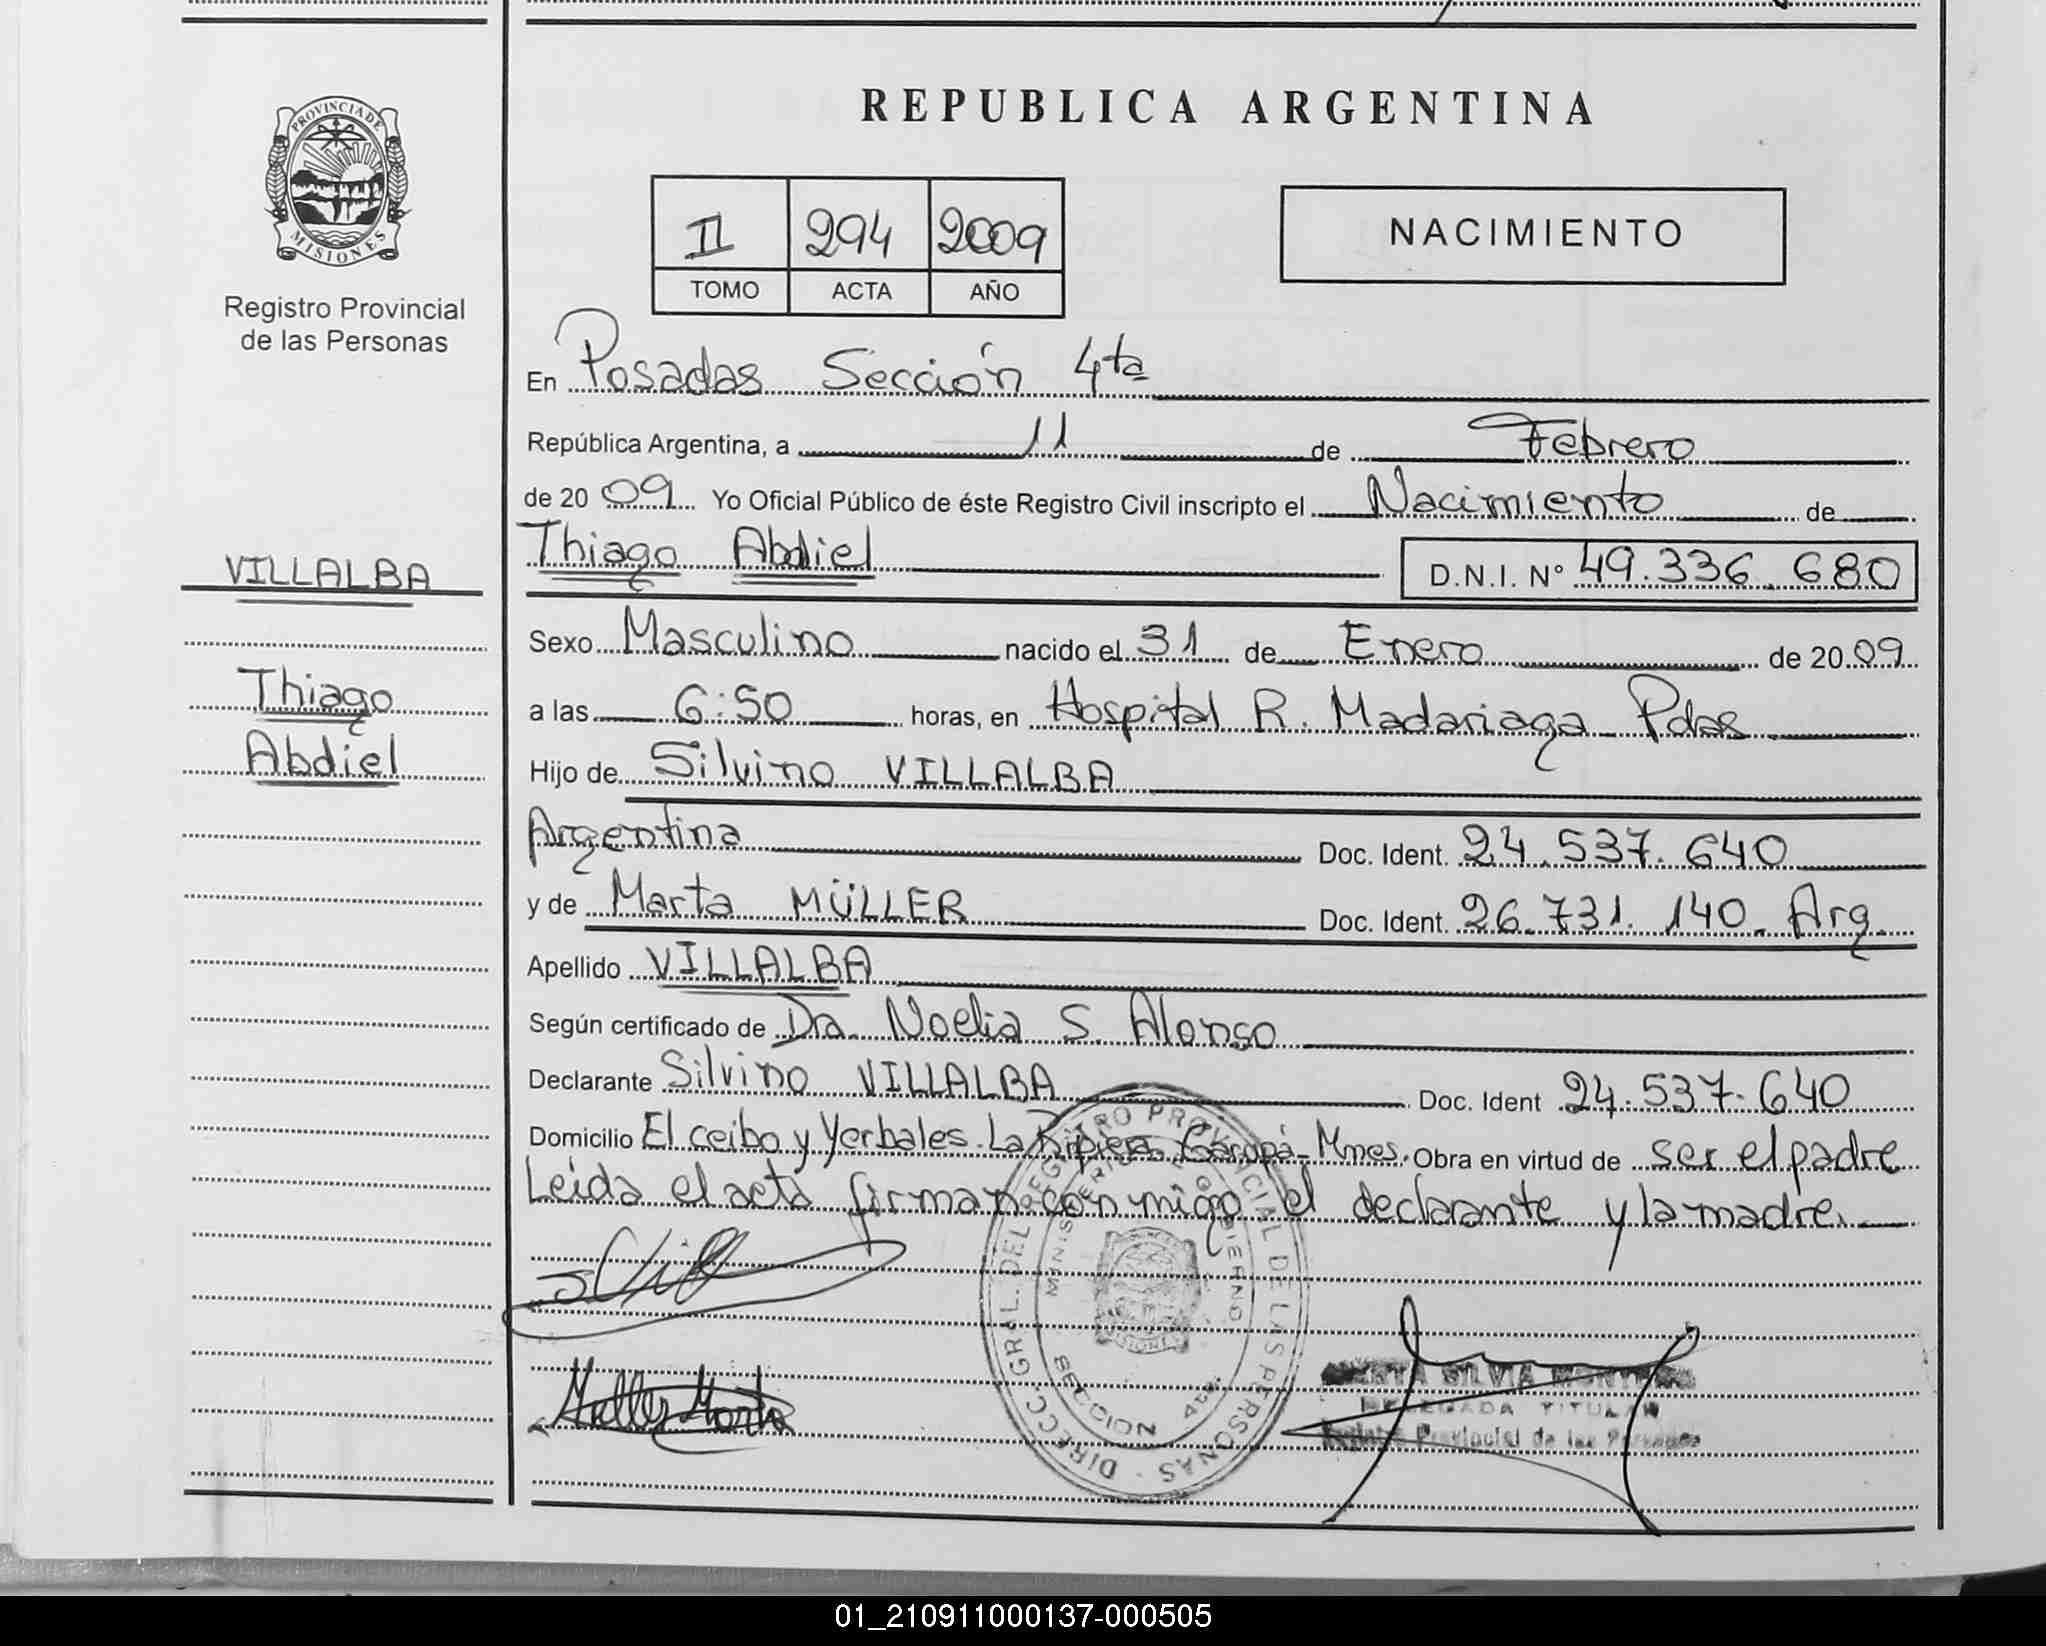 PROVINCIA DE
MISIONES
Registro Provincial
de las Personas
VILLALBA
Thiago
Abdiel
REPUBLICA ARGENTINA
II 294 2009
TOMO ACTA AÑO
NACIMIENTO
En Posadas Sección 4ta
República Argentina, a 11 de Febrero
de 2009 Yo Oficial Público de éste Registro Civil inscripto el Nacimiento de
Thiago Abdiel D.N.I. Nº 49.336.680
Sexo Masculino nacido el 31 de Enero de 2009
a las 6:50 horas, en Hospital R. Madariaga Pdas
Hijo de Silvino VILLALBA
Argentina Doc. Ident. 24.537.640
y de Marta MÜLLER Doc. Ident. 26.731.140. Arg.
Apellido VILLALBA
Según certificado de Dra. Noelia S. Alonso
Declarante Silvino VILLALBA Doc. Ident 24.537.640
Domicilio El ceibo y Yerbales. La Garupá-Mnes. Obra en virtud de ser el padre
Leída el acta firman conmigo el declarante y la madre.
DIRECC. GRAL. DEL REGISTRO PROVINCIAL DE LAS PERSONAS
MINISTERIO DE GOBIERNO
SECCION 4ta.
Muller Marta
SILVIA
DELEGADA TITULAR
Registro Provincial de las Personas
01_210911000137-000505